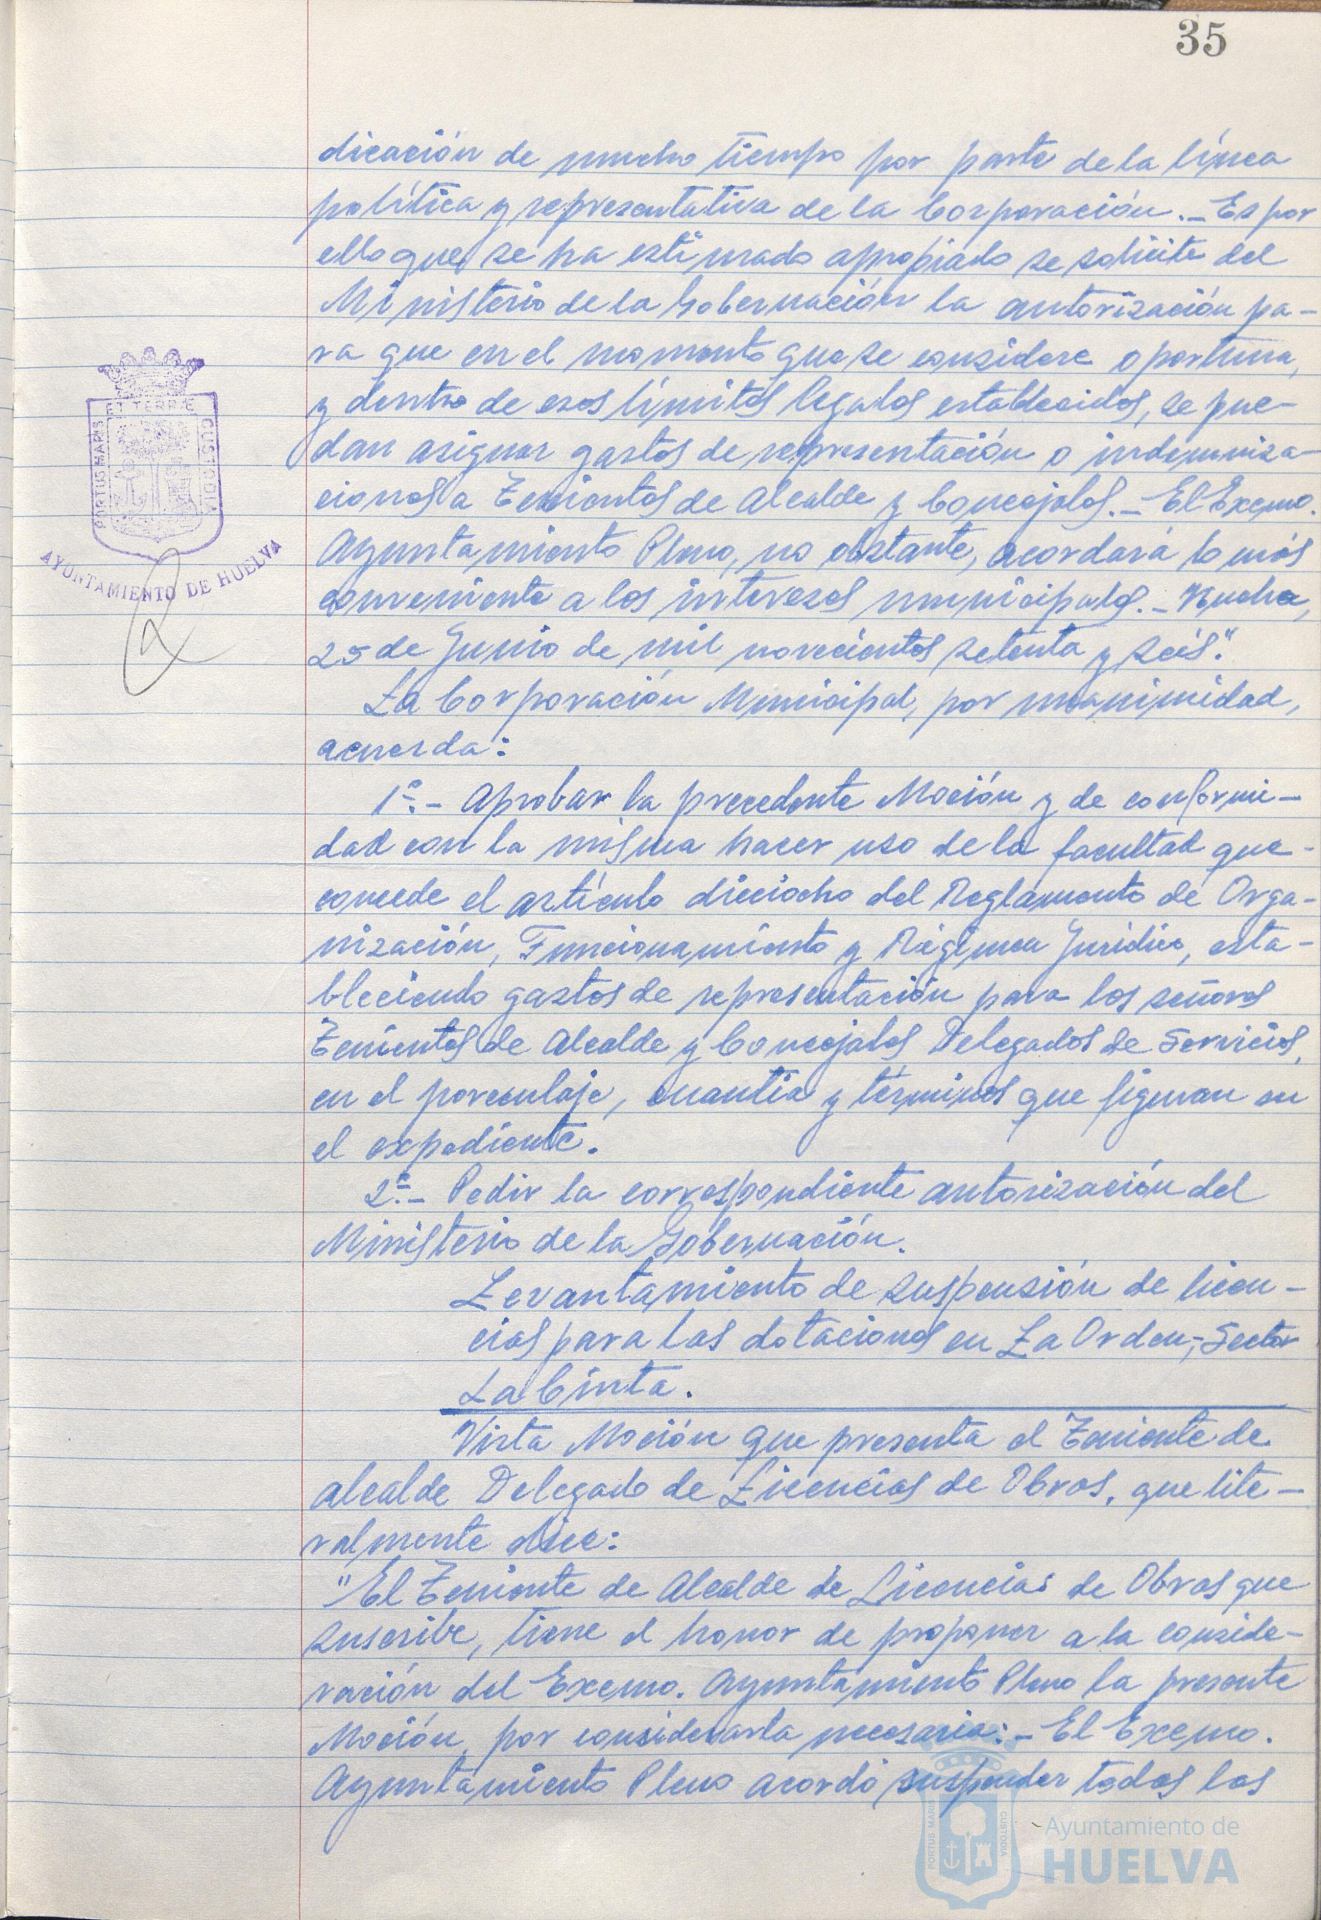 35
dicación de mucho tiempo por parte de la línea
política y representativa de la Corporación.- Es por
ello que se ha estimado apropiado se solicite del
Ministerio de la Gobernación la autorización pa-
ra que en el momento que se considere oportuno,
y dentro de esos límites legales establecidos, se pue-
dan asignar gastos de representación o indemniza-
ciones a Tenientes de Alcalde y Concejales.- El Excmo.
Ayuntamiento Pleno, no obstante, acordará lo más
conveniente a los intereses municipales.- Huelva,
25 de Junio de mil novecientos setenta y seis".
La Corporación Municipal, por unanimidad,
acuerda:
1º.- Aprobar la precedente Moción y de conformi-
dad con la misma hacer uso de la facultad que
concede el artículo dieciocho del Reglamento de Orga-
nización, Funcionamiento y Régimen Jurídico, esta-
bleciendo gastos de representación para los señores
Tenientes de Alcalde y Concejales Delegados de Servicios,
en el porcentaje, cuantía y términos que figuran en
el expediente.
2º.- Pedir la correspondiente autorización del
Ministerio de la Gobernación.
Levantamiento de suspensión de licen-
cias para las dotaciones en La Orden,-Sector
La Cinta.
Vista Moción que presenta el Teniente de
Alcalde Delegado de Licencias de Obras, que lite-
ralmente dice:
"El Teniente de Alcalde de Licencias de Obras que
suscribe, tiene el honor de proponer a la conside-
ración del Excmo. Ayuntamiento Pleno la presente
Moción, por considerarla necesaria:- El Excmo.
Ayuntamiento Pleno acordó suspender todas las
PORTUS MARIS
ET TERRÆ
CUSTODIA
AYUNTAMIENTO DE HUELVA
PORTUS MARIS
CUSTODIA
Ayuntamiento de
HUELVA